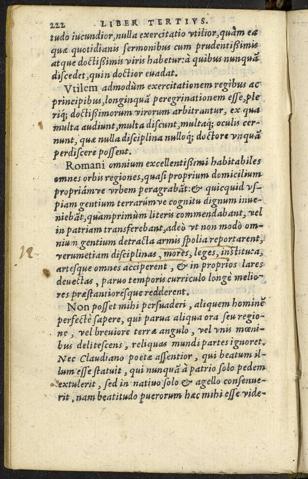 222 LIBER TERTIVS.
tudo iucundior, nulla exercitatio vtilior, quàm ea
quæ quotidianis sermonibus cum prudentißimis
atque doctißimis viris habetur: à quibus nunquā
discedet, quin doctior euadat.
Vtilem admodùm exercitationem regibus ac
principibus, longinquā peregrinationem esse, ple
riq; doctißimorum virorum arbitrantur, ex qua
multa audiunt, multa discunt, multaq; oculis cer-
nunt, quæ nulla disciplina nulloq́; doctore vnquā
perdiscere possent.
Romani omnium excellentißimi habitabiles
omnes orbis regiones, quasi proprium domicilium
propriámve vrbem peragrabāt: & quicquid vs-
piam gentium terrarúmve cognitu dignum inue-
niebāt, quamprimùm literis commendabant, vel
in patriam transferebant, adeò vt non modò om-
nium gentium detracta armis spolia reportarent,
verumetiam disciplinas, mores, leges, instituta,
artesque omnes acciperent, & in proprios lares
deuectas, paruo temporis curriculo longè melio-
res præstantioresque redderent.
Non posset mihi persuaderi, aliquem hominē
perfectè sapere, qui parua aliqua ora seu regio-
ne, vel breuiore terræ angulo, vel vnis mœni-
bus delitescens, reliquas mundi partes ignoret.
Nec Claudiano poetæ assentior, qui beatum il-
lum esse statuit, qui nunquā à patrio solo pedem
extulerit, sed in natiuo solo & agello consenue-
rit, nam beatitudo puerorum hæc mihi esse vide-